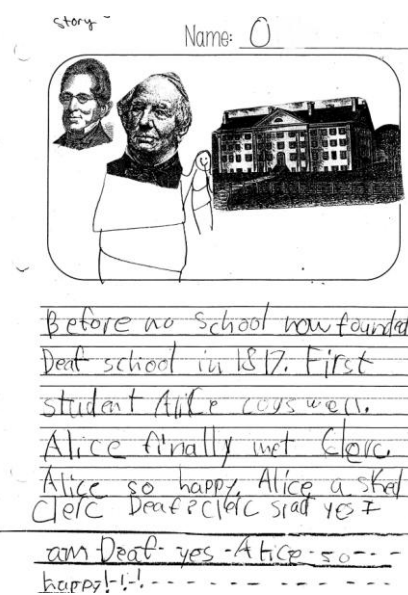 story
Name: O
Before no School now founded
Deaf school in 1817. First
student Alice cogswell.
Alice finally met Clerc.
Alice so happy. Alice asked
Clerc Deaf? Clerc siad yes I
am Deaf- yes - Alice - so - - -
happy!-!-!